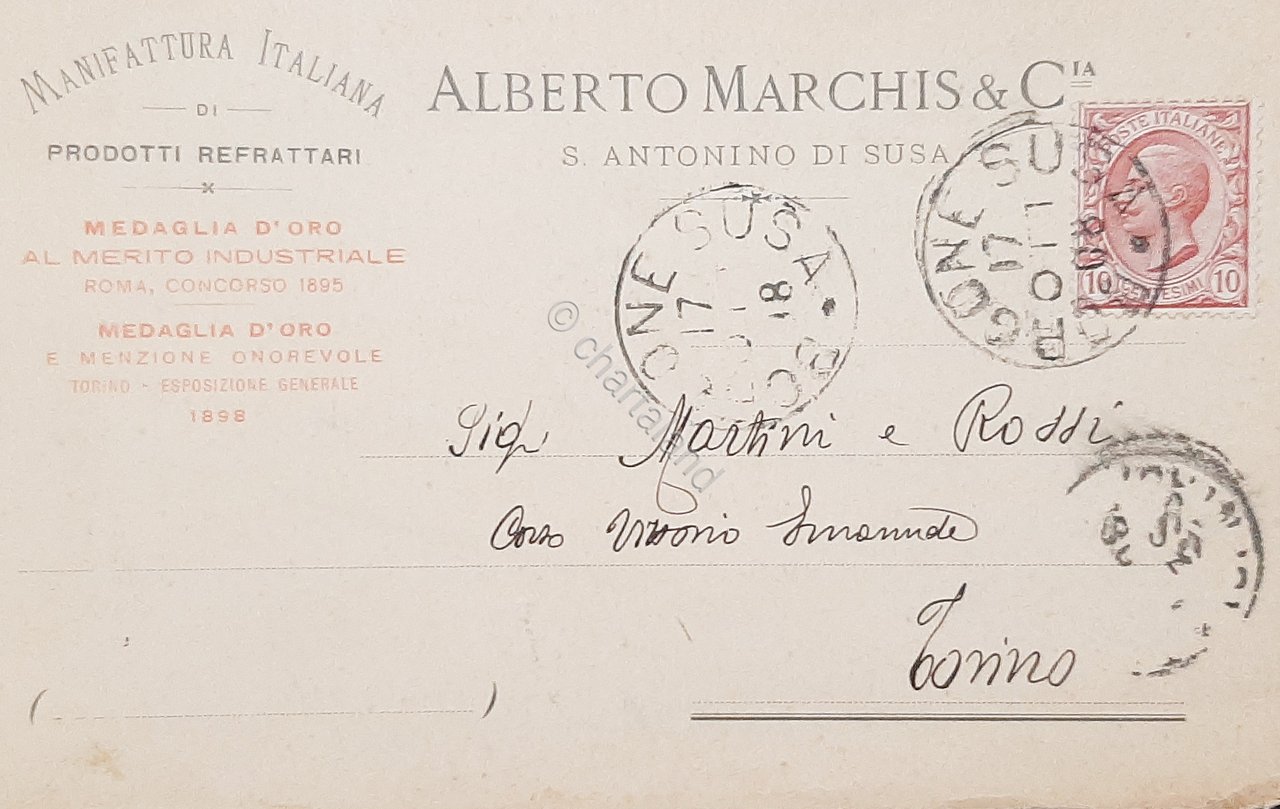 MANIFATTURA ITALIANA
DI
PRODOTTI REFRATTARI
MEDAGLIA D'ORO
AL MERITO INDUSTRIALE
ROMA, CONCORSO 1895
MEDAGLIA D'ORO
E MENZIONE ONOREVOLE
TORINO - ESPOSIZIONE GENERALE
1898
ALBERTO MARCHIS & CIA
S. ANTONINO DI SUSA
POSTE ITALIANE
10 CENTESIMI 10
BORGONE SUSA
17
18
BORGONE SUSA
17
© chartaland
Sigr Martini e Rossi
Corso Vittorio Emanuele
Torino
( )